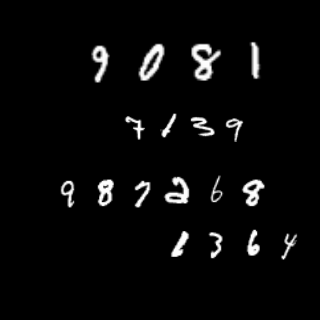 9081
7139
987268
1364